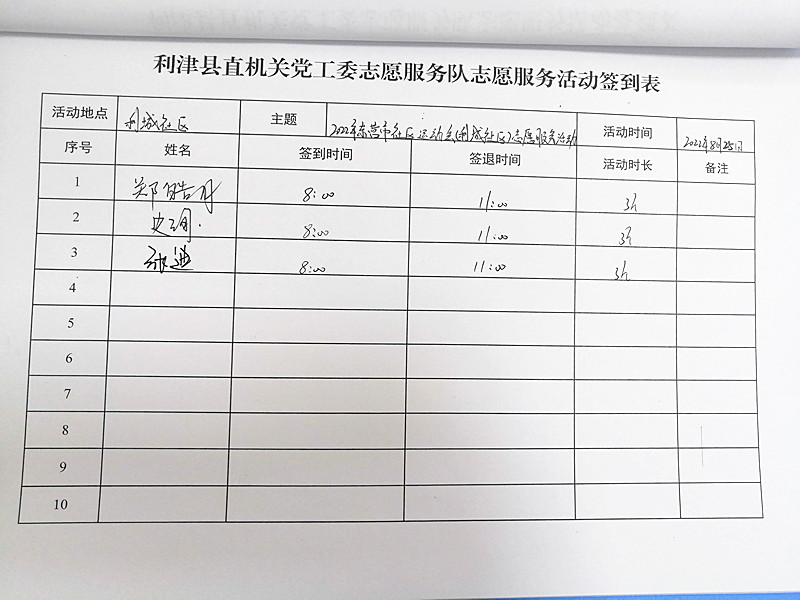 利津县直机关党工委志愿服务队志愿服务活动签到表
活动地点 利城社区 主题 2022年东营市社区运动会(利城社区)志愿服务活动 活动时间 2022年8月25日
序号 姓名 签到时间 签退时间 活动时长 备注
1 郑皓月 8:00 11:00 3h
2 8:00 11:00 3h
3 8:00 11:00 3h
4
5
6
7
8
9
10